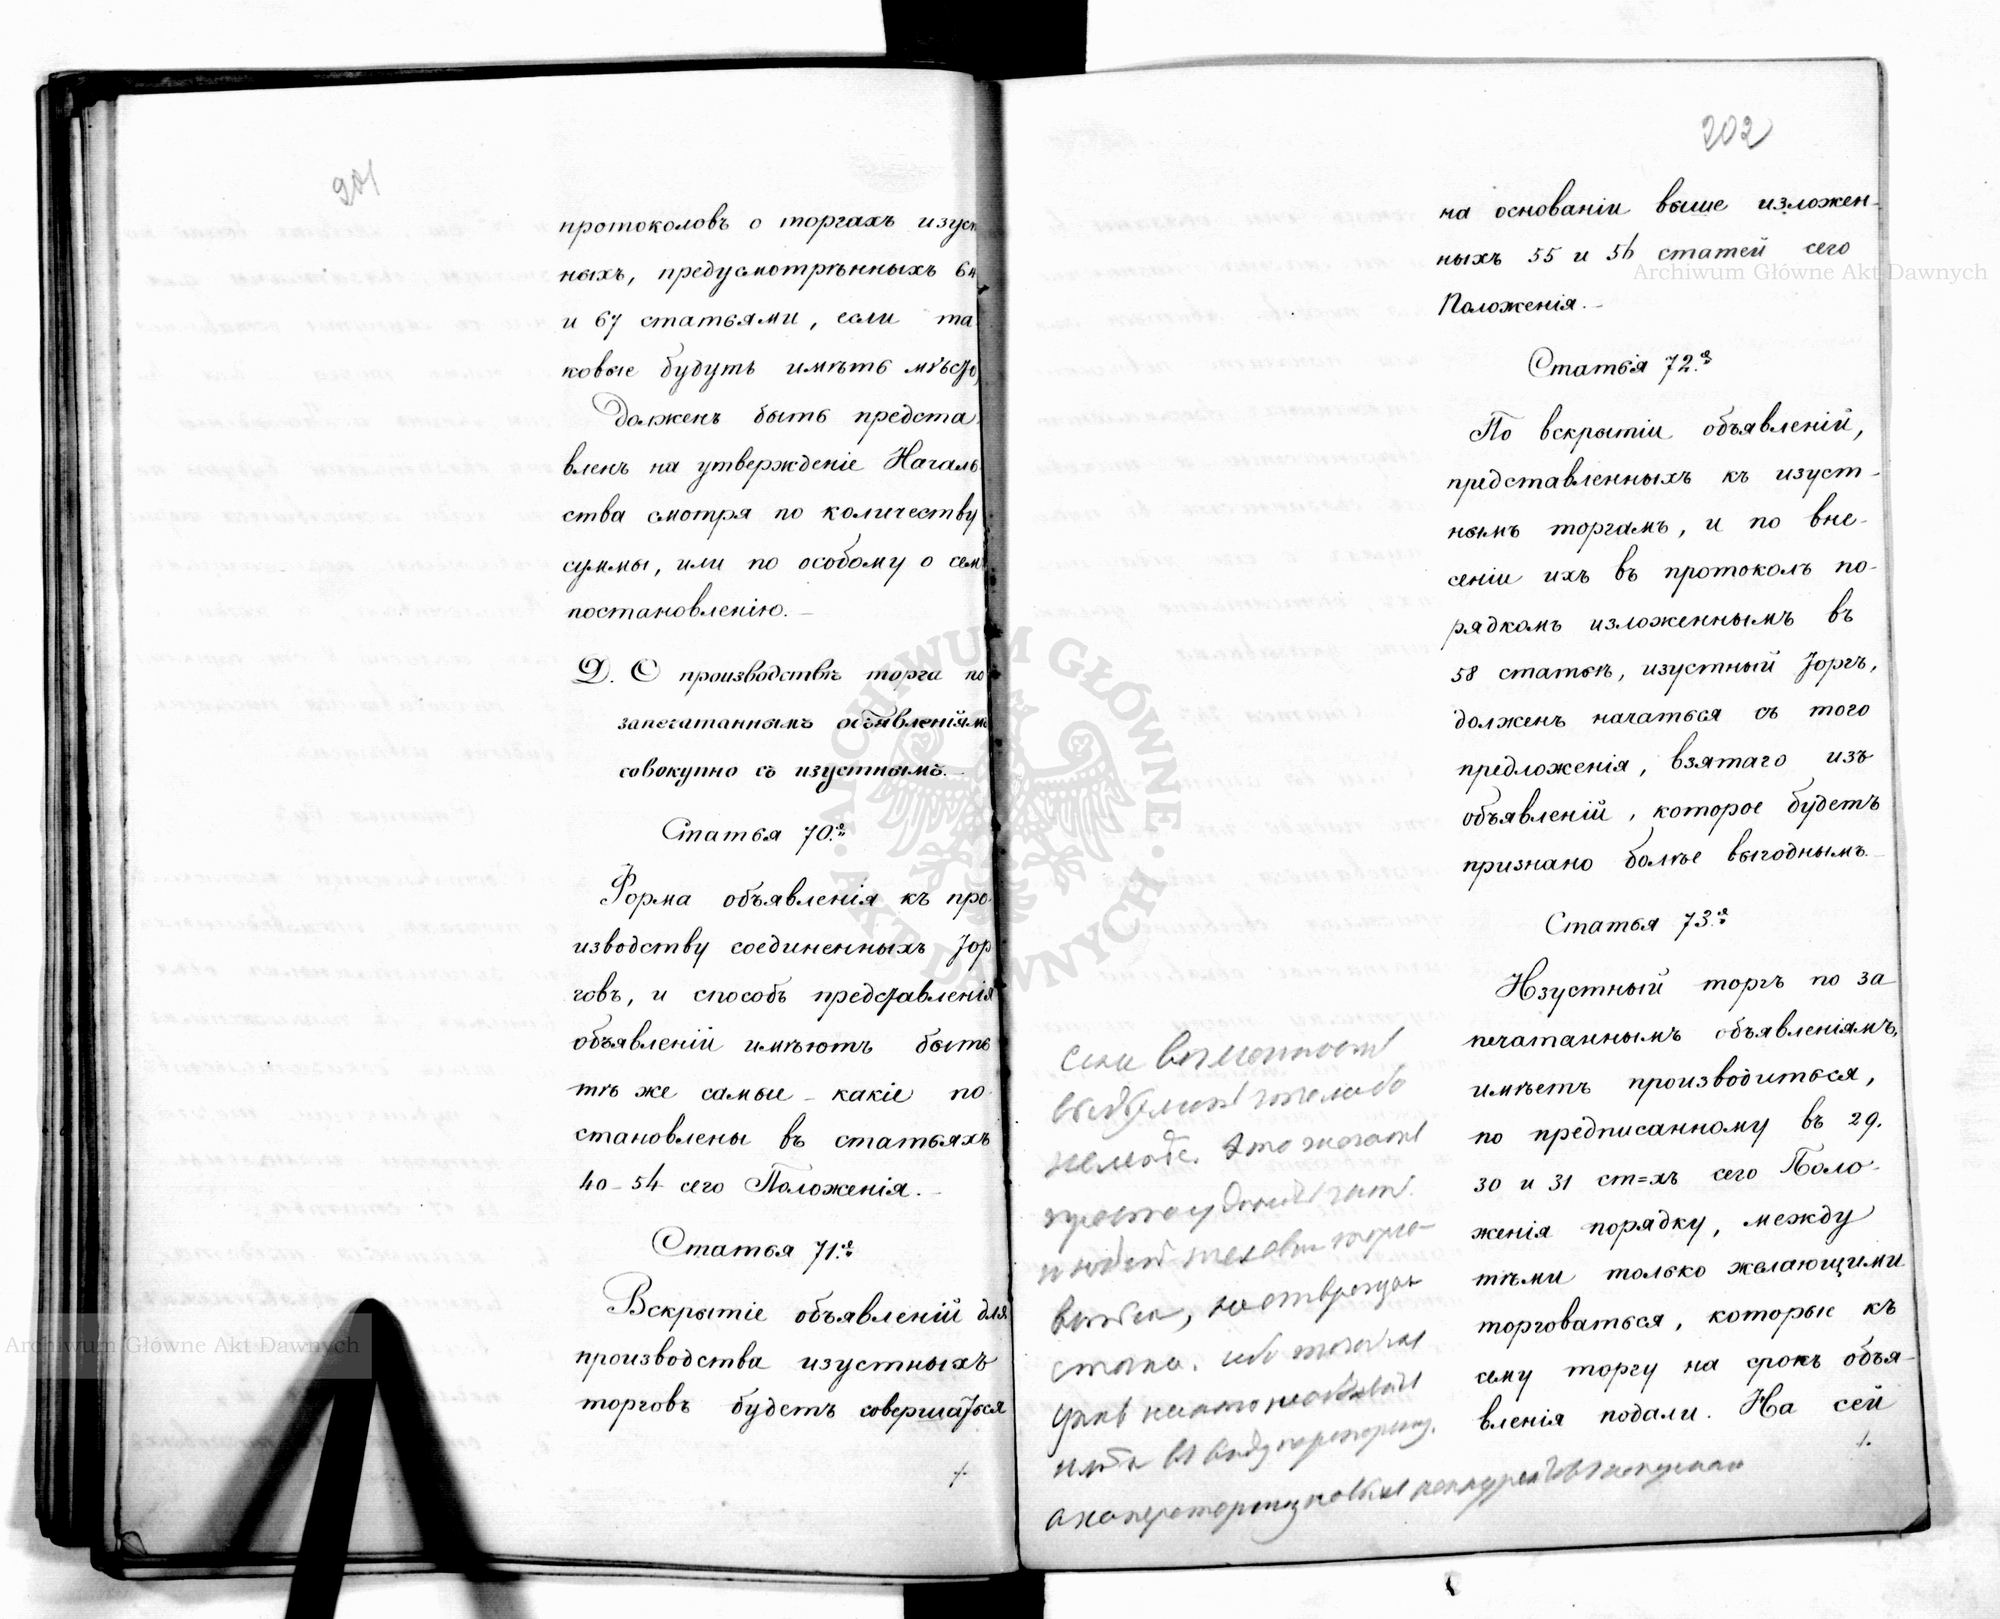 201
протоколовъ о торгахъ изуст
ныхъ, предусмотрѣнныхъ 64
и 67 статьями, если та
ковые будутъ имѣть мѣсто,
Долженъ быть предста
вленъ на утвержденіе Началь
ства смотря по количеству
суммы, или по особому о семъ
постановленію. –
Д. О производствѣ торга по
запечатаннымъ объявленіямъ
совокупно съ изустнымъ. –
Статья 70.я
Форма объявленія къ про
изводству соединенныхъ тор
говъ, и способъ представленія
объявленій имѣютъ быть
тѣ же самые – какіе по
становлены въ статьяхъ
40–54 сего Положенія. –
Статья 71.я
Вскрытіе объявленій для
производства изустныхъ
торговъ будетъ совершаться
202
на основаніи выше изложен-
ныхъ 55 и 56 статей сего
Положенія. –
Статья 72.я
По вскрытіи объявленій,
представленныхъ къ изуст-
нымъ торгамъ, и по вне-
сеніи ихъ въ протоколъ по-
рядкомъ изложеннымъ въ
58 статьѣ, изустный торгъ,
долженъ начаться съ того
предложенія, взятаго изъ
объявленій, которое будетъ
признано болѣе выгоднымъ. –
Статья 73.я
Изустный торгъ по за
печатаннымъ объявленіямъ,
имѣетъ производиться,
по предписанному въ 29.
30 и 31 ст=хъ сего Поло-
женія порядку, между
тѣми только желающими
торговаться, которые къ
сему торгу на срокъ объя-
вленія подали. На сей
Archiwum Główne Akt Dawnych
Archiwum Główne Akt Dawnych
ARCHIWUM GŁÓWNE AKT DAWNYCH